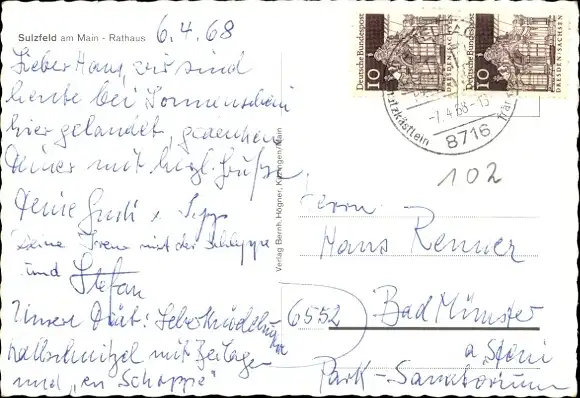 Sulzfeld am Main - Rathaus
6.4.68
Lieber Hans, wir sind
heute bei Sonnenschein
hier gelandet, gedenken
Deiner mit herzl. Grüße
Deine Gusti u. Sepp
Deine Irene mit der Schleppe
und Stefan
Unsere Diät: Leberknödelsuppe
Kalbschnitzel mit Beilagen
und "en Schoppe"
Verlag Bernh. Högner, Kitzingen/Main
Deutsche Bundespost
10
DRESDEN/SACHSEN
Deutsche Bundespost
10
DRESDEN/SACHSEN
-7.4.68-13
8716
102
Herrn
Hans Renner
6552 Bad Münster
a. Stein
Park-Sanatorium